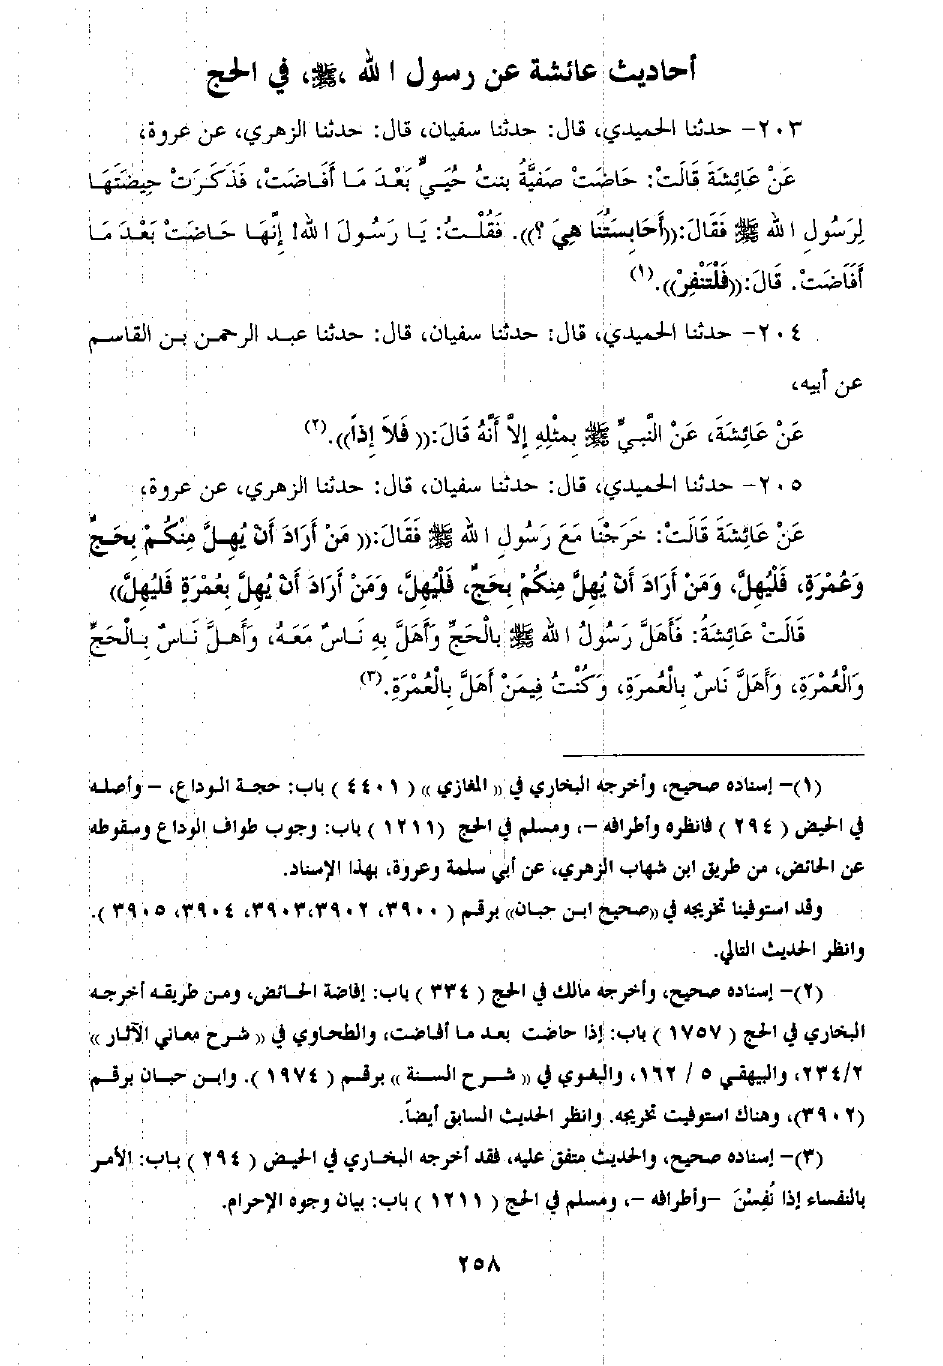 أحاديث عائشة عن رسول الله ،ﷺ، في الحج
٢٠٣- حدثنا الحميدي، قال: حدثنا سفيان، قال: حدثنا الزهري، عن عروة،
عَنْ عَائِشَةَ قَالَتْ: حَاضَتْ صَفِيَّةُ بنتُ حُيَيٍّ بَعْدَ مَا أَفَاضَتْ، فَذَكَرَتْ حِيضَتَهَا
لِرَسُولِ الله ﷺ فَقَالَ:((أَحَابِسَتُنَا هِيَ ؟)). فَقُلْتُ: يَا رَسُولَ الله! إِنَّهَا حَاضَتْ بَعْدَ مَا
أَفَاضَتْ. قَالَ:((فَلْتَنْفِرْ)).(١)
٢٠٤- حدثنا الحميدي، قال: حدثنا سفيان، قال: حدثنا عبد الرحمن بن القاسم
عن أبيه،
عَنْ عَائِشَةَ، عَنْ النَّبِيِّ ﷺ بِمِثْلِهِ إِلاَّ أَنَّهُ قَالَ:(( فَلاَ إِذاً)).(٢)
٢٠٥- حدثنا الحميدي، قال: حدثنا سفيان، قال: حدثنا الزهري، عن عروة،
عَنْ عَائِشَةَ قَالَتْ: خَرَجْنَا مَعَ رَسُولِ الله ﷺ فَقَالَ:(( مَنْ أَرَادَ أَنْ يُهِلَّ مِنْكُمْ بِحَجٍّ
وَعُمْرَةٍ، فَلْيُهِلَّ، وَمَنْ أَرَادَ أَنْ يُهِلَّ مِنكُمْ بِحَجٍّ، فَلْيُهِلَّ، وَمَنْ أَرَادَ أَنْ يُهِلَّ بِعُمْرَةٍ فَليُهِلَّ))
قَالَتْ عَائِشَةُ: فَأَهَلَّ رَسُولُ الله ﷺ بالْحَجِّ وَأَهَلَّ بِهِ نَاسٌ مَعَهُ، وَأَهلَّ نَاسٌ بِالْحَجِّ
وَالْعُمْرَةِ، وَأَهَلَّ نَاسٌ بِالْعُمرَةِ، وَكُنْتُ فِيمَنْ أَهَلَّ بِالْعُمْرَةِ.(٣)
(١)- إسناده صحيح، وأخرجه البخاري في (( المغازي )) ( ٤٤٠١ ) باب: حجة الوداع، -وأصله
في الحيض ( ٢٩٤ ) فانظره وأطرافه -، ومسلم في الحج (١٢١١ ) باب: وجوب طواف الوداع وسقوطه
عن الحائض، من طريق ابن شهاب الزهري، عن أبي سلمة وعروة، بهذا الإسناد.
وقد استوفينا تخريجه في ((صحيح ابن حبان)) برقم ( ٣٩٠٠، ٣٩٠٢،٣٩٠٣، ٣٩٠٤، ٣٩٠٥ ).
وانظر الحديث التالي.
(٢)- إسناده صحيح، وأخرجه مالك في الحج ( ٣٣٤ ) باب: إفاضة الحائض، ومن طريقه أخرجه
البخاري في الحج ( ١٧٥٧ ) باب: إذا حاضت بعد ما أفاضت، والطحاوي في (( شرح معاني الآثار ))
٢٣٤/٢، والبيهقي ٥ / ١٦٢، والبغوي في (( شرح السنة )) برقم ( ١٩٧٤ ). وابن حبان برقم
(٣٩٠٢)، وهناك استوفيت تخريجه. وانظر الحديث السابق أيضاً.
(٣)- إسناده صحيح، والحديث متفق عليه، فقد أخرجه البخاري في الحيض ( ٢٩٤ ) باب: الأمر
بالنفساء إذا نُفِسْنَ -وأطرافه -، ومسلم في الحج ( ١٢١١ ) باب: بيان وجوه الإحرام.
٢٥٨